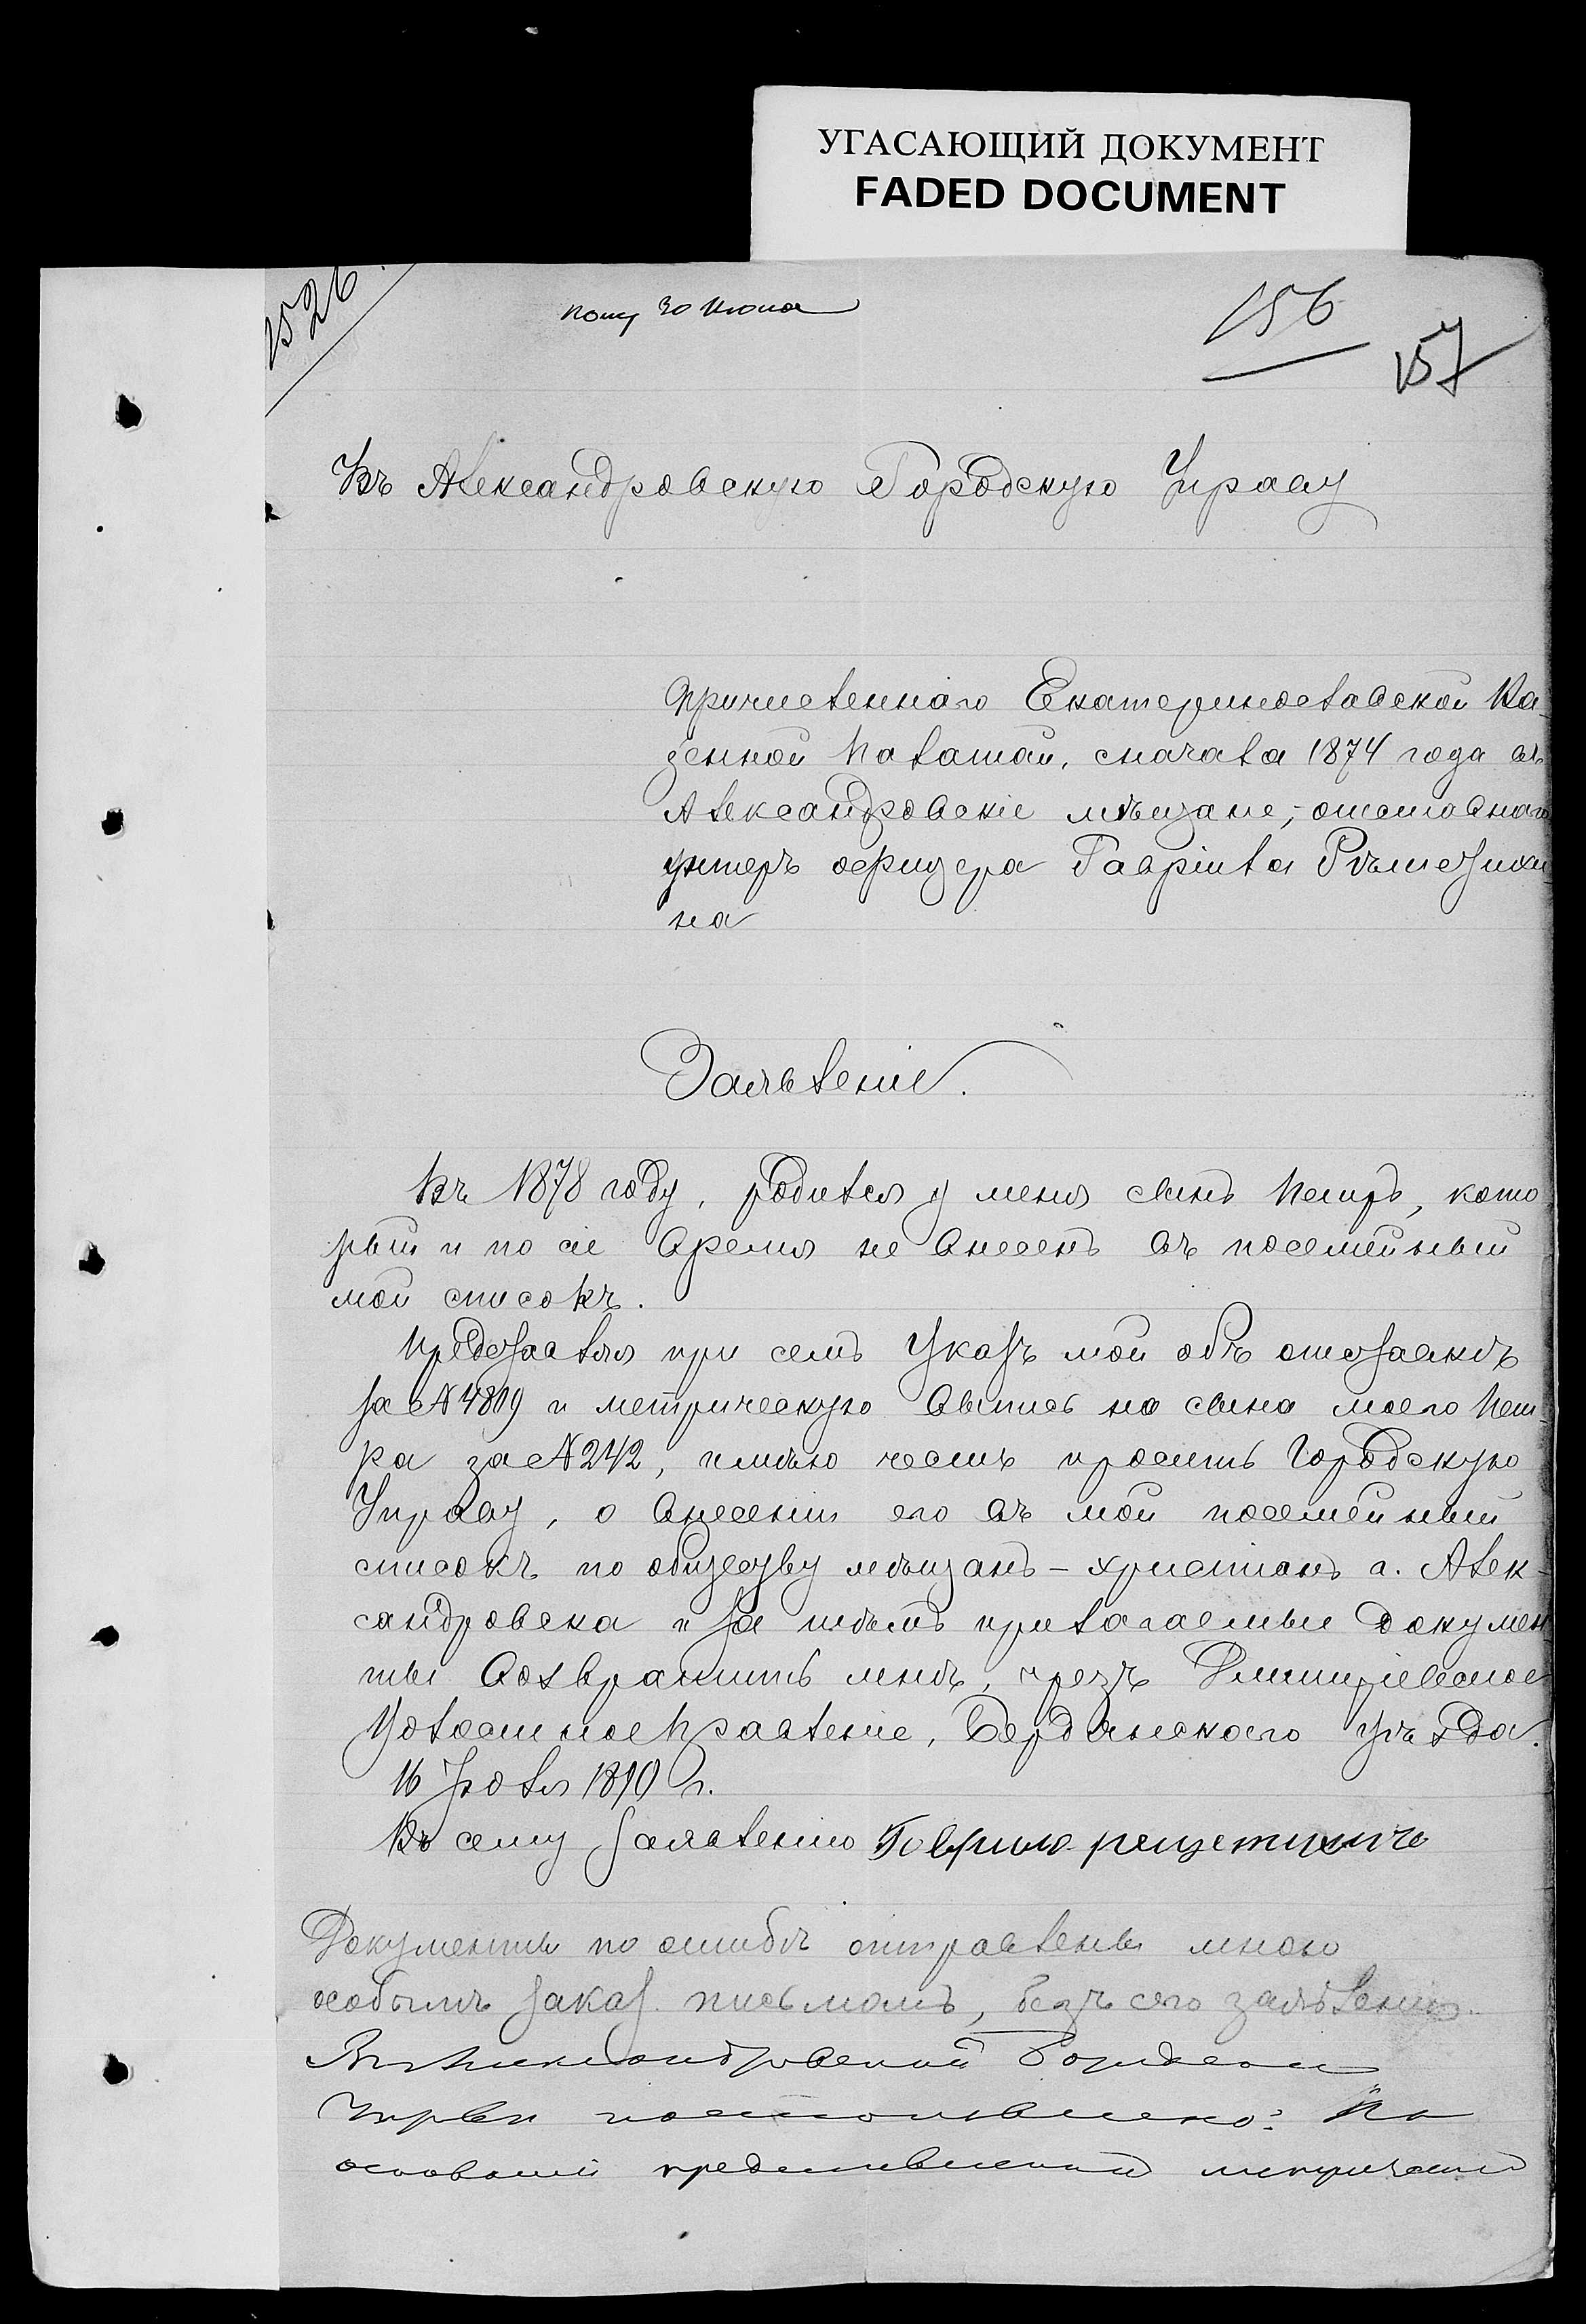 УГАСАЮЩИЙ ДОКУМЕНТ
FADED DOCUMENT
1526.
30 Июня
156
157
Въ Александровскую Городскую Управу
Причисленнаго Екатеринославской Ка-
зенной Палатой, сначала 1874 года въ
Александровскіе мѣщане,- отставнаго
унтеръ офицера Гавріила Рѣшетихи-
на
Заявленіе.
Въ 1878 году, родился у меня сынъ Петръ, кото
рый и по сіе время не внесенъ въ посемейный
мой списокъ.
Представляя при семъ Указъ мой объ отставкѣ
за № 4809 и метрическую выпись на сына моего Пет-
ра за № 242, имѣю честь просить Городскую
Управу, о внесеніи его въ мой посемейный
списокъ по обществу мѣщанъ - христіанъ г. Алек-
сандровска и за тѣмъ прилагаемые докумен
ты возвратить мнѣ, чрезъ Дмитріевское
Волостное Правленіе, Бердянскаго уѣзда.
16 Іюля 1890 г.
Къ сему заявленію Гаврило рещетихинъ
Документы по ошибкѣ отправлены мною
особымъ заказ. письмомъ, безъ сего заявленія.
Въ Александровской Городской
Управѣ постановлено: На
основаніи представленной метрической